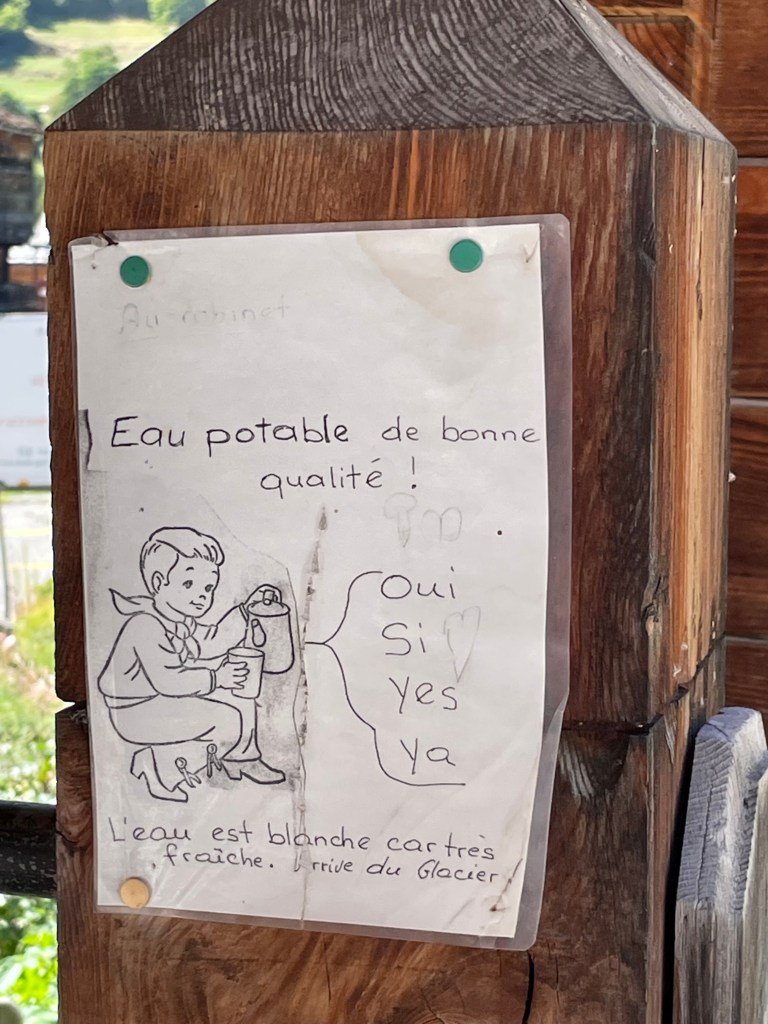 Au robinet
Eau potable de bonne
qualité !
Oui
Si
yes
ya
L'eau est blanche car très
fraîche. Arrive du Glacier